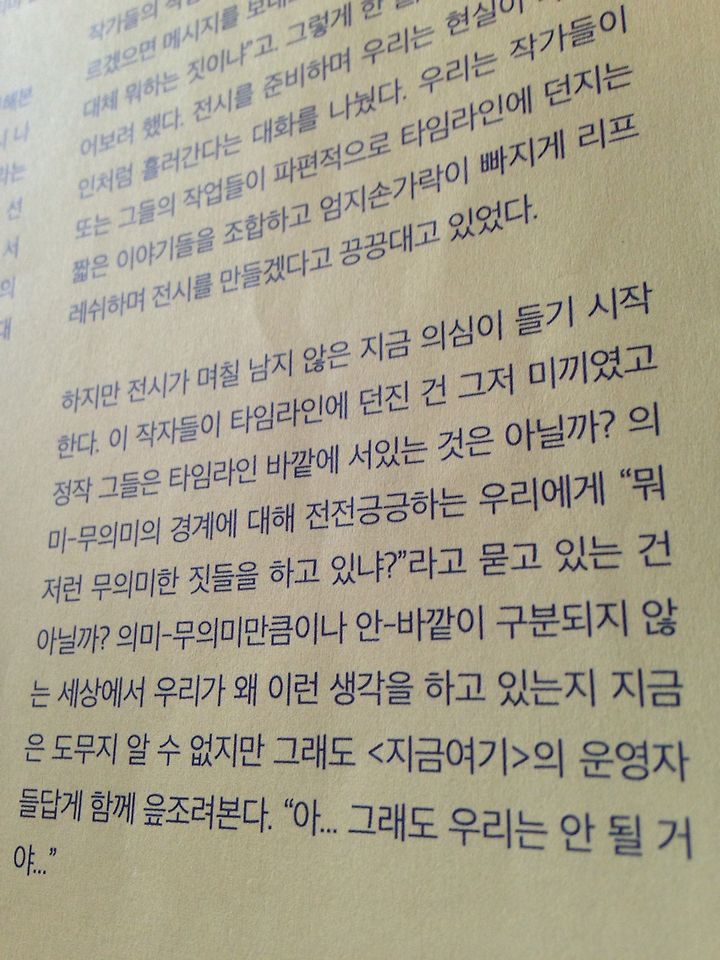 작가들의
르겠으면 메시지를 보내
대체 뭐하는 짓이냐”고. 그렇게 한
어보려 했다. 전시를 준비하며 우리는 현실이
인처럼 흘러간다는 대화를 나눴다. 우리는 작가들이
또는 그들의 작업들이 파편적으로 타임라인에 던지는
짧은 이야기들을 조합하고 엄지손가락이 빠지게 리프
레쉬하며 전시를 만들겠다고 끙끙대고 있었다.
하지만 전시가 며칠 남지 않은 지금 의심이 들기 시작
한다. 이 작자들이 타임라인에 던진 건 그저 미끼였고
정작 그들은 타임라인 바깥에 서있는 것은 아닐까? 의
미-무의미의 경계에 대해 전전긍긍하는 우리에게 “뭐
저런 무의미한 짓들을 하고 있냐?”라고 묻고 있는 건
아닐까? 의미-무의미만큼이나 안-바깥이 구분되지 않
는 세상에서 우리가 왜 이런 생각을 하고 있는지 지금
은 도무지 알 수 없지만 그래도 <지금여기>의 운영자
들답게 함께 읊조려본다. “아... 그래도 우리는 안 될 거
야...”